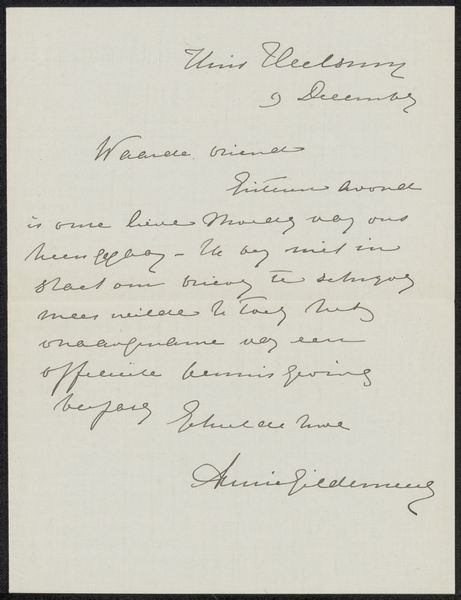 Huis Heelsum
9 December
Waarde vriend
Gisteren avond
is onze lieve Moeder van ons
heengegaan – Ik ben niet in
staat om brieven te schrijven
maar wilde U toch het
onaangename van een
officieele kennisgeving
besparen
Annie Gildemeester